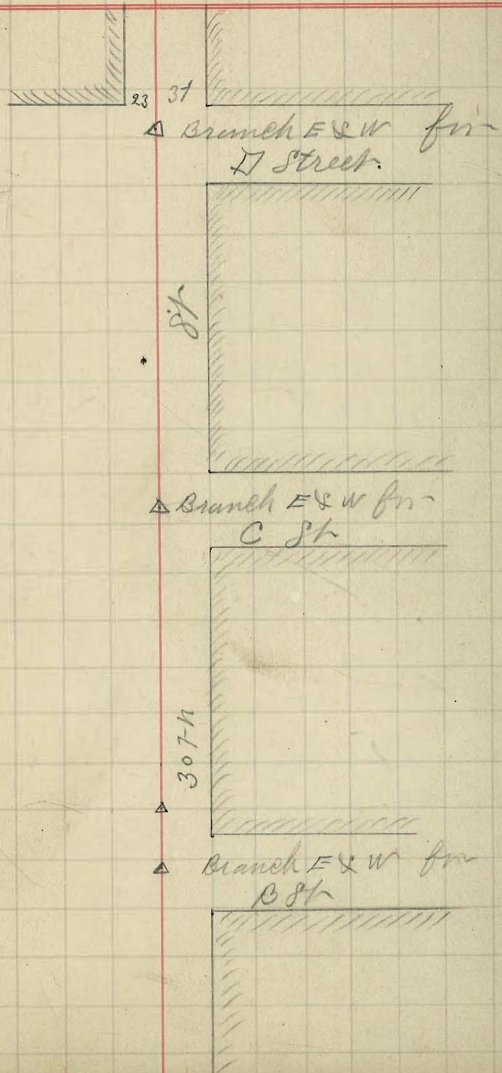 23 31
Branch E & W for
D Street.
St
Branch E & W for
C St
30th
Branch E & W for
B St